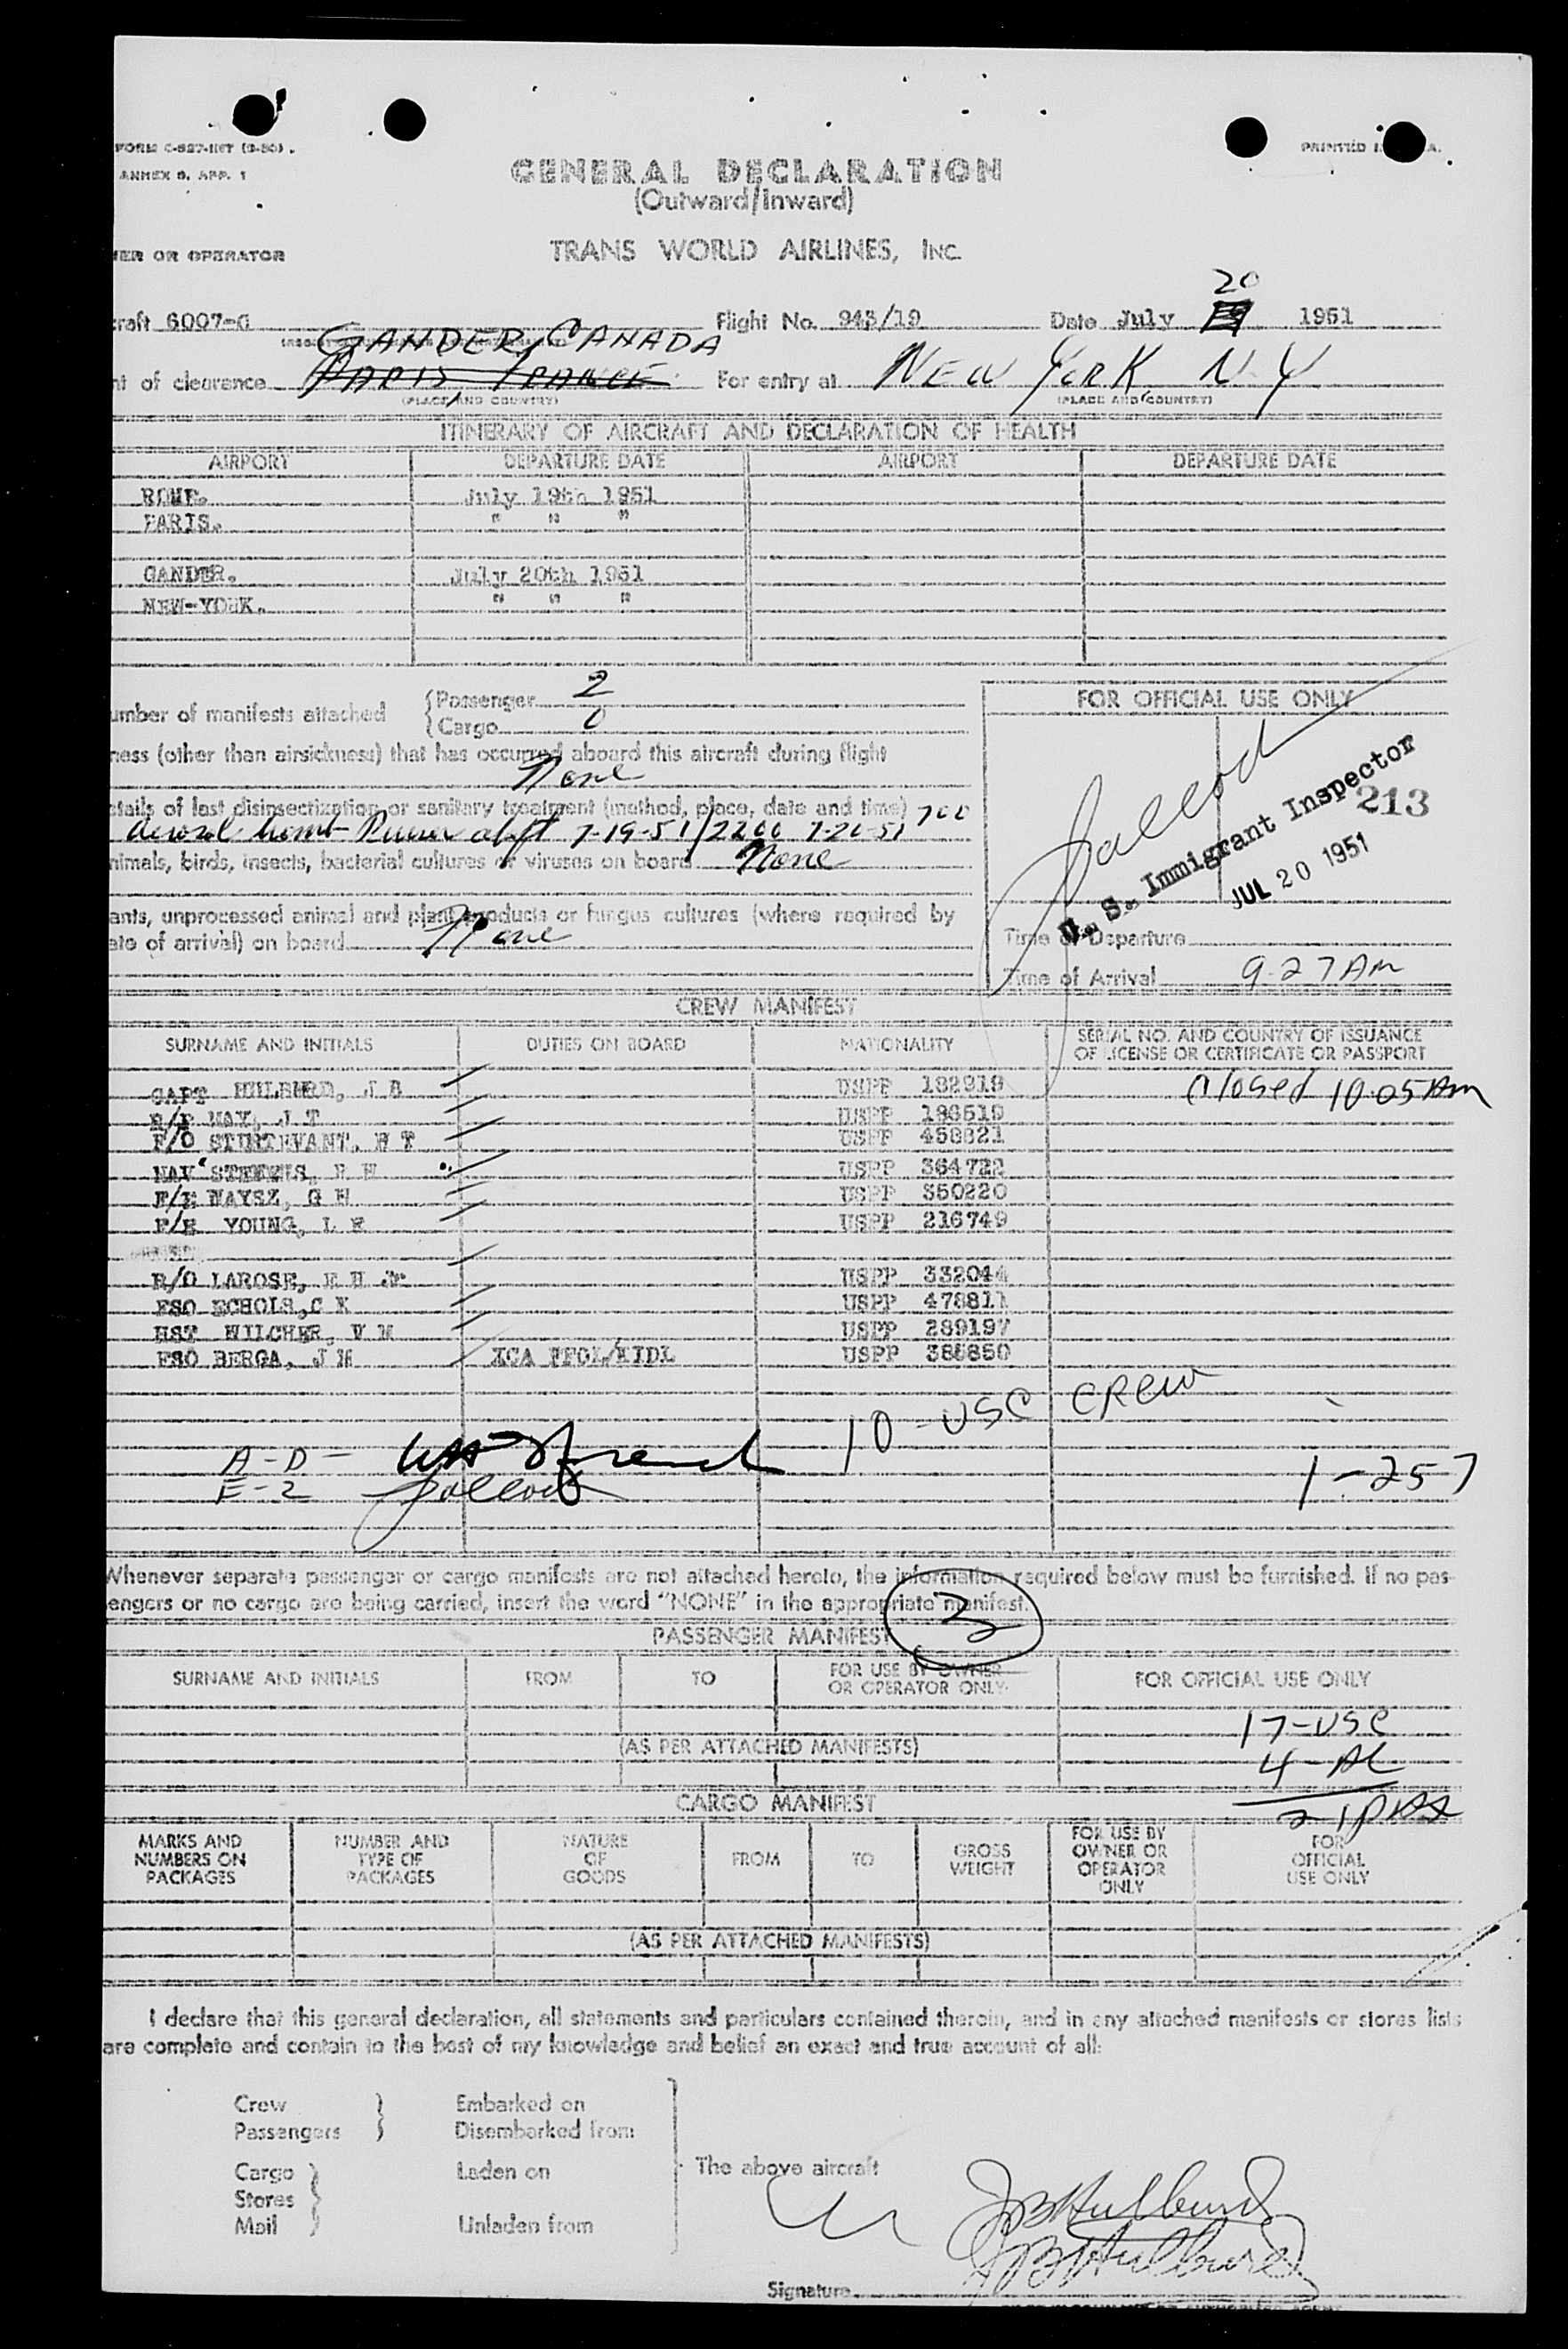 FORM C-827-INT (9-50)
PRINTED
ANNEX 9, APP. 1
GENERAL DECLARATION
(Outward/Inward)
TRANS WORLD AIRLINES, INC.
OR OPERATOR
20
6007-C Flight No. 943/19 Date July 1951
GANDER, CANADA
of clearance PARIS FRANCE For entry at NEW YORK N Y
(PLACE AND COUNTRY) (PLACE AND COUNTRY)
ITINERARY OF AIRCRAFT AND DECLARATION OF HEALTH
AIRPORT DEPARTURE DATE AIRPORT DEPARTURE DATE
ROME. July 19th 1951
PARIS. " " "
GANDER. July 20th 1951
NEW-YORK. " " "
umber of manifests attached { Passenger 2
{ Cargo 0
FOR OFFICIAL USE ONLY
ness (other than airsickness) that has occurred aboard this aircraft during flight
None
etails of last disinsectization or sanitary treatment (method, place, date and time) 700
Aerosol bomb 7-19-51/2200 7-20-51
nimals, birds, insects, bacterial cultures or viruses on board None
ants, unprocessed animal and plant products or fungus cultures (where required by
ate of arrival) on board None
U. S. Immigrant Inspector
213
JUL 20 1951
Time of Departure
Time of Arrival 9-27 AM
CREW MANIFEST
SURNAME AND INITIALS DUTIES ON BOARD NATIONALITY SERIAL NO. AND COUNTRY OF ISSUANCE
OF LICENSE OR CERTIFICATE OR PASSPORT
CAPT HULBURD, J B USPP 182919 closed 10:05 AM
MAY, J T USPP 186519
F/O STURTEVANT, H T USPP 458821
NAV STEVENS, USPP 364722
F/E MAYSZ, G H USPP 350220
F/E YOUNG, L E USPP 216749
R/O LAROSE, E H Jr USPP 332044
FSO ECHOLS, C K USPP 478811
HST WILCHER, V M USPP 289197
FSO BERGA, J M USPP 385850
10-USC CREW
A-D-
E-2
1-257
Whenever separate passenger or cargo manifests are not attached hereto, the information required below must be furnished. If no pas-
engers or no cargo are being carried, insert the word "NONE" in the appropriate manifest.
3
PASSENGER MANIFEST
SURNAME AND INITIALS FROM TO FOR USE BY OWNER OR OPERATOR ONLY FOR OFFICIAL USE ONLY
17-USC
(AS PER ATTACHED MANIFESTS)
4-AL
21 PAX
CARGO MANIFEST
MARKS AND NUMBERS ON PACKAGES NUMBER AND TYPE OF PACKAGES NATURE OF GOODS FROM TO GROSS WEIGHT FOR USE BY OWNER OR OPERATOR ONLY FOR OFFICIAL USE ONLY
(AS PER ATTACHED MANIFESTS)
I declare that this general declaration, all statements and particulars contained therein, and in any attached manifests or stores lists
are complete and contain to the best of my knowledge and belief an exact and true account of all:
Crew } Embarked on
Passengers } Disembarked from
Cargo } Laden on The above aircraft
Stores
Mail } Unladen from
JB Hulburd
JB Hulburd
Signature